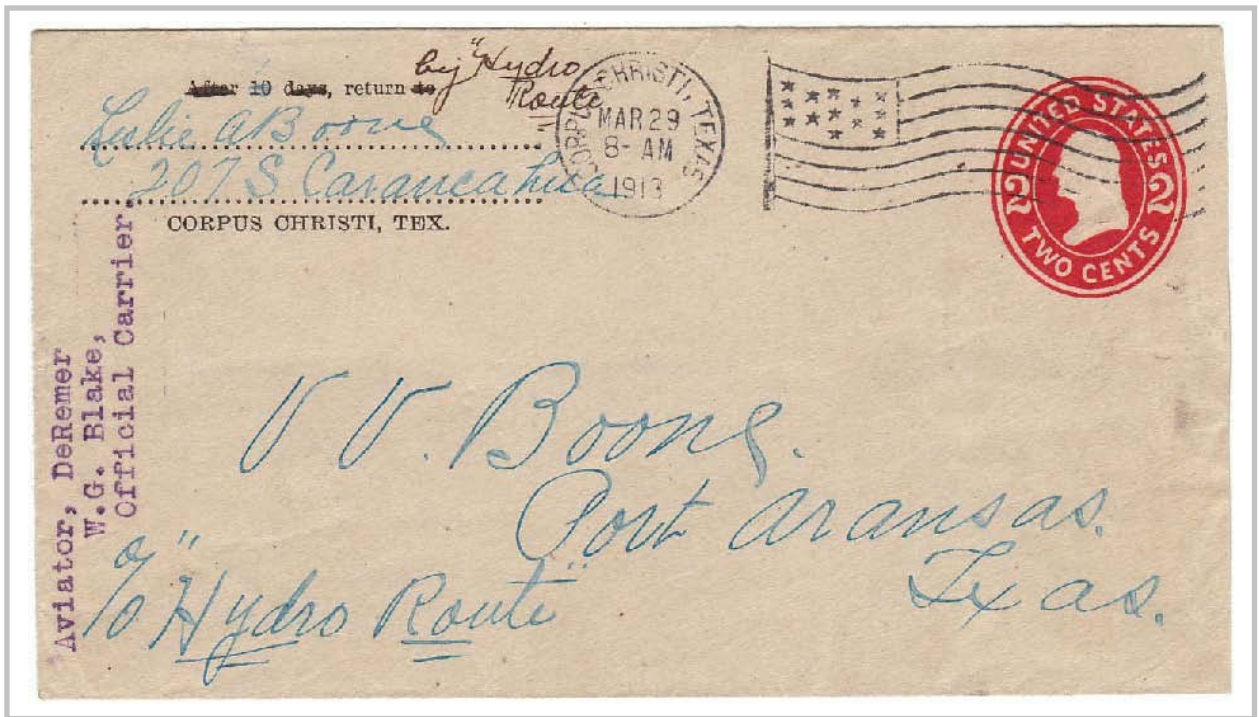 After 10 days, return to
by "Hydro
Route
Leslie A Boone
207 S Carancahua
CORPUS CHRISTI, TEX.
CORPUS CHRISTI, TEXAS
MAR 29
8-AM
1913
UNITED STATES
2 2
TWO CENTS
Aviator, DeRemer
W.G. Blake,
Official Carrier.
V V. Boone.
Port Aransas.
Texas.
% "Hydro Route"